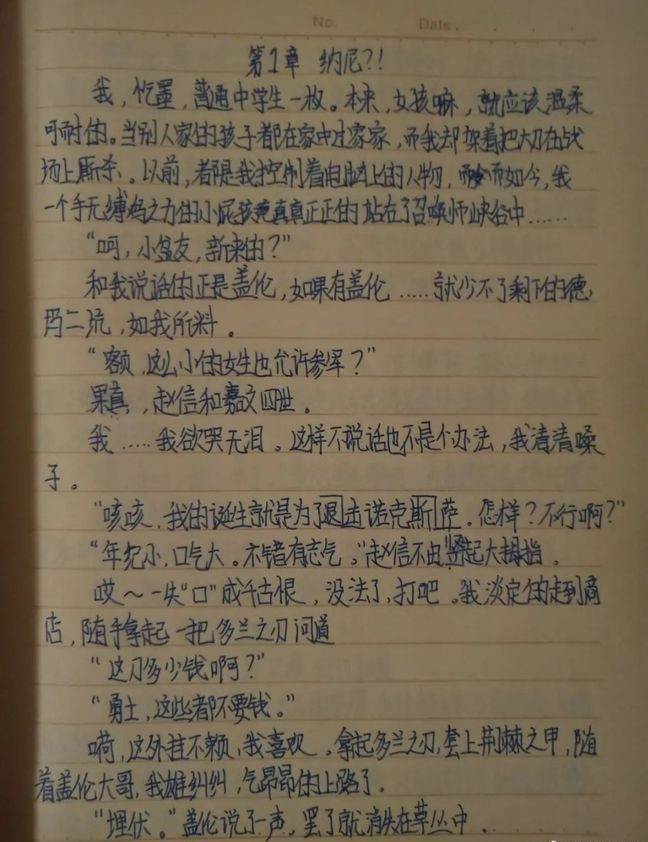 No.
Date.
第1章 纳尼?!
我，忔墨，普通中学生一枚。本来，女孩嘛，就应该温柔
可耐的。当别人家的孩子都在家中过家家，而我却架着把大刀在战
场上厮杀。以前，都是我控制着电脑上的人物，而如今，我
一个手无缚鸡之力的小屁孩竟真真正正的站在了召唤师峡谷中……
“呵，小盆友，新来的？”
和我说话的正是盖伦，如果有盖伦……就少不了剩下的德
玛二坑，如我所料。
“额，这么小的女生也允许参军？”
果真，赵信和嘉文四世。
我……我欲哭无泪。这样不说话也不是个办法，我清清嗓
子。
“咳咳，我的诞生就是为了退击诺克斯萨。怎样？不行啊？”
“年纪小，口气大。不错有志气。”赵信不由竖起大拇指。
哎～一失“口”成千古恨，没法了，打吧。我淡定的走到商
店，随手拿起一把多兰之刃问道
“这刀多少钱啊？”
“勇士，这些都不要钱。”
嗬，这外挂不赖，我喜欢。拿起多兰之刃，套上荆棘之甲，随
着盖伦大哥，我雄纠纠，气昂昂的上路了。
“埋伏。”盖伦说了一声，罢了就消失在草丛中。